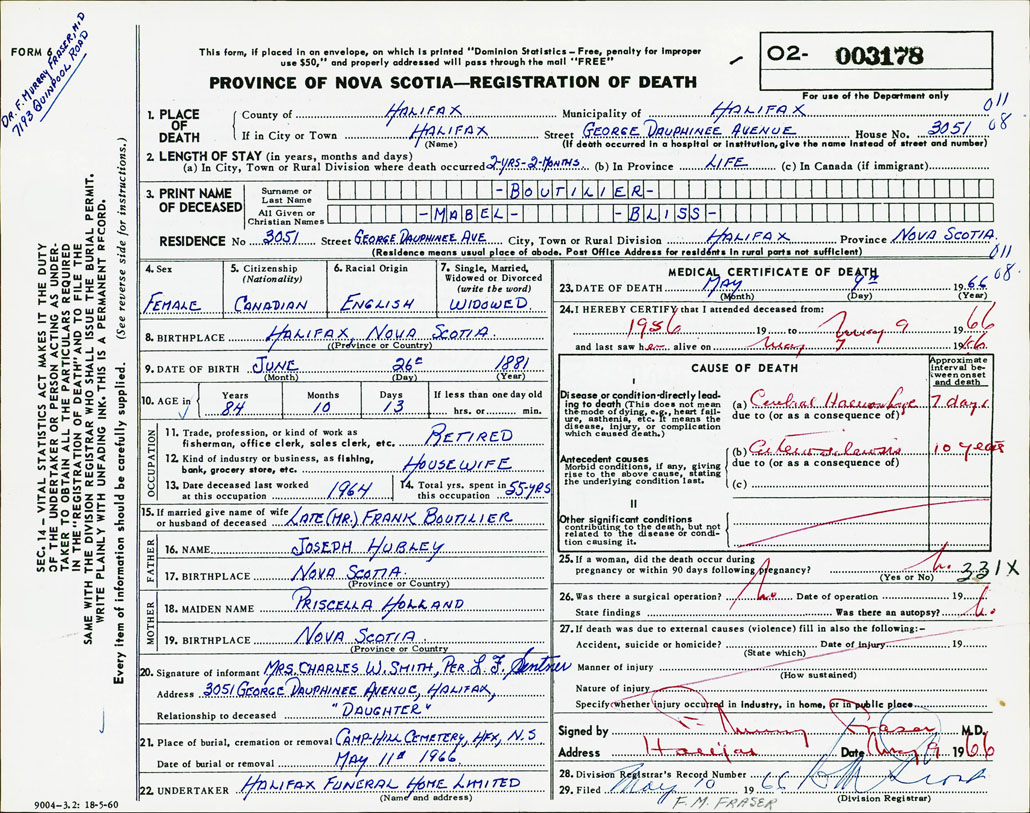 FORM 6
DR. F. MURRAY FRASER, M.D
7193 QUINPOOL ROAD
This form, if placed in an envelope, on which is printed "Dominion Statistics – Free, penalty for improper
use $50," and properly addressed will pass through the mail "FREE"
PROVINCE OF NOVA SCOTIA—REGISTRATION OF DEATH
O2- 003178
For use of the Department only
011
08
1. PLACE OF DEATH
County of HALIFAX Municipality of HALIFAX
If in City or Town HALIFAX Street GEORGE DAUPHINEE AVENUE House No. 3051
(Name) (If death occurred in a hospital or institution, give the name instead of street and number)
2. LENGTH OF STAY (in years, months and days)
(a) In City, Town or Rural Division where death occurred 2-YRS-2-MONTHS (b) In Province LIFE (c) In Canada (if immigrant)
3. PRINT NAME OF DECEASED
Surname or Last Name -BOUTILIER-
All Given or Christian Names -MABEL- -BLISS-
RESIDENCE No 3051 Street GEORGE DAUPHINEE AVE City, Town or Rural Division HALIFAX Province NOVA SCOTIA
(Residence means usual place of abode. Post Office Address for residents in rural parts not sufficient)
011
08.
4. Sex
FEMALE
5. Citizenship
(Nationality)
CANADIAN
6. Racial Origin
ENGLISH
7. Single, Married,
Widowed or Divorced
(write the word)
WIDOWED
8. BIRTHPLACE HALIFAX, NOVA SCOTIA.
(Province or Country)
9. DATE OF BIRTH JUNE 26 1881
(Month) (Day) (Year)
10. AGE in
Years Months Days If less than one day old
84 10 13 hrs. or min.
OCCUPATION
11. Trade, profession, or kind of work as
fisherman, office clerk, sales clerk, etc. RETIRED
12. Kind of industry or business, as fishing,
bank, grocery store, etc. HOUSEWIFE
13. Date deceased last worked
at this occupation 1964
14. Total yrs. spent in
this occupation 55-YRS
15. If married give name of wife
or husband of deceased LATE (MR.) FRANK BOUTILIER
FATHER
16. NAME JOSEPH HUBLEY
17. BIRTHPLACE NOVA SCOTIA.
(Province or Country)
MOTHER
18. MAIDEN NAME PRISCELLA HOLLAND
19. BIRTHPLACE NOVA SCOTIA
(Province or Country
20. Signature of informant MRS. CHARLES W. SMITH, PER. L. F. Sentner
Address 3051 GEORGE DAUPHINEE AVENUE, HALIFAX,
Relationship to deceased "DAUGHTER"
21. Place of burial, cremation or removal CAMP-HILL CEMETERY, HFX, N.S
Date of burial or removal MAY 11 1966
22. UNDERTAKER HALIFAX FUNERAL HOME LIMITED
(Name and address)
9004–3.2: 18-5-60
MEDICAL CERTIFICATE OF DEATH
23. DATE OF DEATH MAY 9th 1966
(Month) (Day) (Year)
24. I HEREBY CERTIFY that I attended deceased from:
1956 19 to May 9 1966
and last saw her alive on May 7 1966
CAUSE OF DEATH
Approximate
interval be-
tween onset
and death
I
Disease or condition directly lead-
ing to death (This does not mean
the mode of dying, e.g., heart fail-
ure, asthenia, etc. It means the
disease, injury, or complication
which caused death.)
(a) Cerebral Haemorrhage 7 days
due to (or as a consequence of)
Antecedent causes
Morbid conditions, if any, giving
rise to the above cause, stating
the underlying condition last.
(b) Arteriosclerosis 10 years
due to (or as a consequence of)
(c)
II
Other significant conditions
contributing to the death, but not
related to the disease or condi-
tion causing it.
25. If a woman, did the death occur during
pregnancy or within 90 days following pregnancy? No
(Yes or No)
331X
26. Was there a surgical operation? No Date of operation 19
State findings Was there an autopsy? No
27. If death was due to external causes (violence) fill in also the following:–
Accident, suicide or homicide? Date of injury 19
(State which)
Manner of injury
(How sustained)
Nature of injury
Specify whether injury occurred in industry, in home, or in public place
Signed by F. Murray Fraser M.D.
Address Halifax Date May 9 1966
28. Division Registrar's Record Number
29. Filed May 10 1966
(Division Registrar)
F. M. FRASER
SEC. 14 – VITAL STATISTICS ACT MAKES IT THE DUTY
OF THE UNDERTAKER OR PERSON ACTING AS UNDER-
TAKER TO OBTAIN ALL THE PARTICULARS REQUIRED
IN THE "REGISTRATION OF DEATH" AND TO FILE THE
SAME WITH THE DIVISION REGISTRAR WHO SHALL ISSUE THE BURIAL PERMIT.
WRITE PLAINLY WITH UNFADING INK. THIS IS A PERMANENT RECORD.
Every item of information should be carefully supplied. (See reverse side for instructions.)